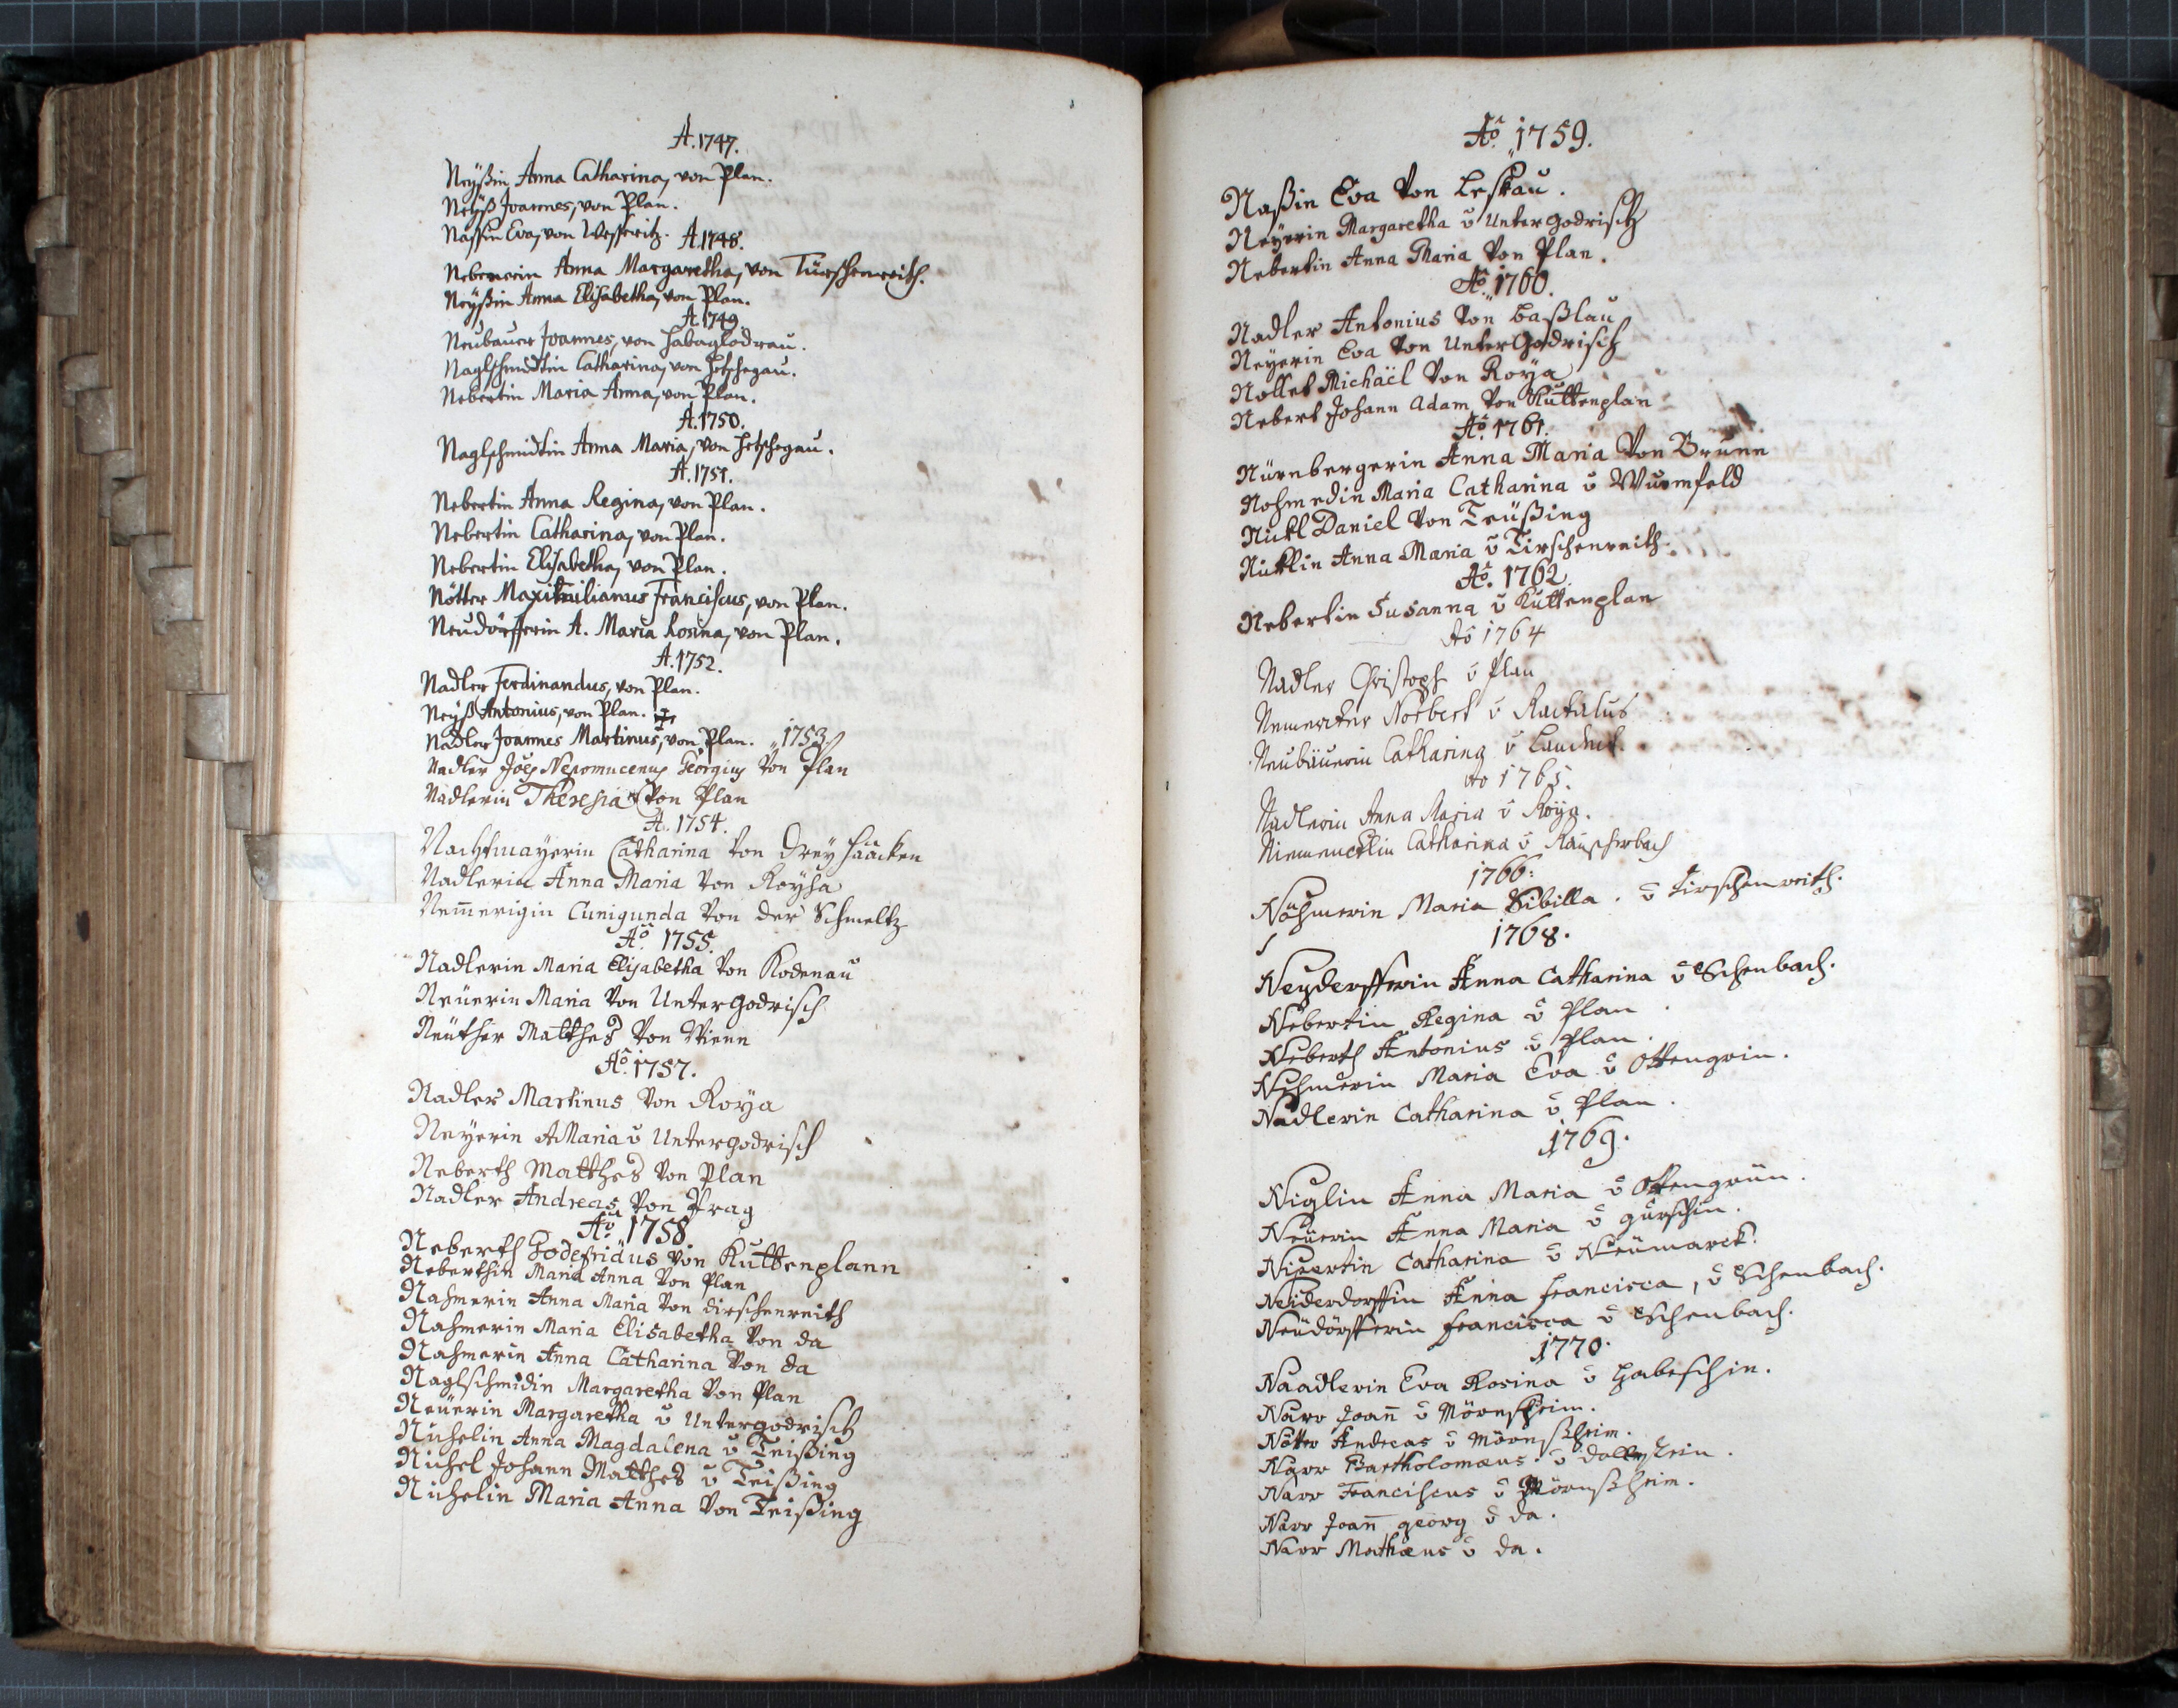 A. 1747.
Neÿßin Anna Catharina, von Plan.
Neÿß Joannes, von Plan.
Nassin Eva, von Wesseritz. A. 1748.
Nebererin Anna Margaretha, von Türschenreith.
Neÿßin Anna Elisabetha, von Plan.
A. 1749.
Neubauer Joannes, von Habaglodrau.
Naglschmidtin Catharina, von Hetschegau.
Nebertin Maria Anna, von Plan.
A. 1750.
Naglschmidtin Anna Maria, von Hetschegau.
A. 1751.
Nebertin Anna Regina, von Plan.
Nebertin Catharina, von Plan.
Nebertin Elisabetha, von Plan.
Nötter Maximilianus Franciscus, von Plan.
Neudörfferin A. Maria Rosina, von Plan.
A. 1752.
Nadler Ferdinandus, von Plan.
Neÿß Antonius, von Plan.
Nadler Joannes Martinus, von Plan. 1753
Nadler Joes Nepomucenus Georgius Von Plan
Nadlerin Theresia Von Plan
A. 1754.
Nachtmayerin Catharina Von Dreÿ Haacken
Nadlerin Anna Maria Von Royha
Nem̄erigin Cunigunda Von der Schmeltz
Aō. 1755.
Nadlerin Maria Elisabetha Von Kodenau
Neüerin Maria Von Untergodrisch
Neüther Matthes Von Wienn
Aō. 1757.
Nadler Martinus Von Roya
Neyerin A Maria v̄ Untergodrisch
Neberth Matthes Von Plan
Nadler Andreas Von Prag
Aō. 1758.
Neberth Godefridus Von Kuttenplann
Neberthin Maria Anna Von Plan
Nahmerin Anna Maria Von dirschenreith
Nahmerin Maria Elisabetha Von da
Nahmerin Anna Catharina Von da
Naglschmidin Margaretha Von Plan
Neüerin Margaretha v̄ Untergodrisch
Nuhelin Anna Magdalena v̄ Teissing
Nuhel Johann Matthes v̄ Teissing
Nuhelin Maria Anna Von Teissing
Aō. 1759.
Naßin Eva Von Leskau.
Neyerin Margaretha v̄ Untergodrisch
Nebertin Anna Maria Von Plan.
Aō. 1760.
Nadler Antonius Von Baßlau
Neyerin Eva Von Untergodrisch
Nollet Michaël Von Roya
Nebert Johann Adam Von Kuttenplan
Aō. 1761.
Nürnbergerin Anna Maria Von Brunn
Nohmedin Maria Catharina v̄ Wurmfeld
Nickl Daniel Von Teüßing
Nicklin Anna Maria v̄ Tirschenreith.
Aō. 1762.
Nebertin Susanna v̄ Kuttenplan
Aō 1764
Nadler Christoph v̄ Plan
Norbert v̄
Neubäuerin Catharina v̄
Ao 1765.
Nadlerin Anna Maria v̄ Roya.
Catharina v̄ Rauschenbach
1766:
Nöhmerin Maria Sibilla. v̄ Tirschenreith.
1768.
Neyderfferin Anna Catharina v̄ Eschenbach.
Nebertin Regina v̄ Plan.
Neberth Antonius v̄ Plan.
Nehmerin Maria Eva v̄ Ottengrin.
Nadlerin Catharina v̄ Plan.
1769.
Niglin Anna Maria v̄ Ottengrün.
Neüerin Anna Maria v̄ gürschin.
Nipertin Catharina v̄ Neümarck.
Neiderdorffin Anna francisca, v̄ Eschenbach.
Neüdörfferin francisca v̄ Eschenbach.
1770.
Naadlerin Eva Rosina v̄ Habeschin.
Narr Joan̄ v̄ Mörnsheim.
Nötter Andreas v̄ Mörnßheim.
Narr Bartholomæus v̄ Dollnstein.
Narr Franciscus v̄ Mörnßheim.
Narr Joan̄ georg v̄ da.
Narr Mathæus v̄ da.